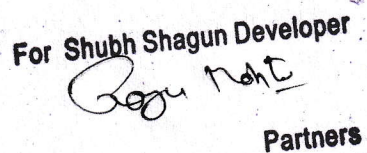 For Shubh Shagun Developer
Partners